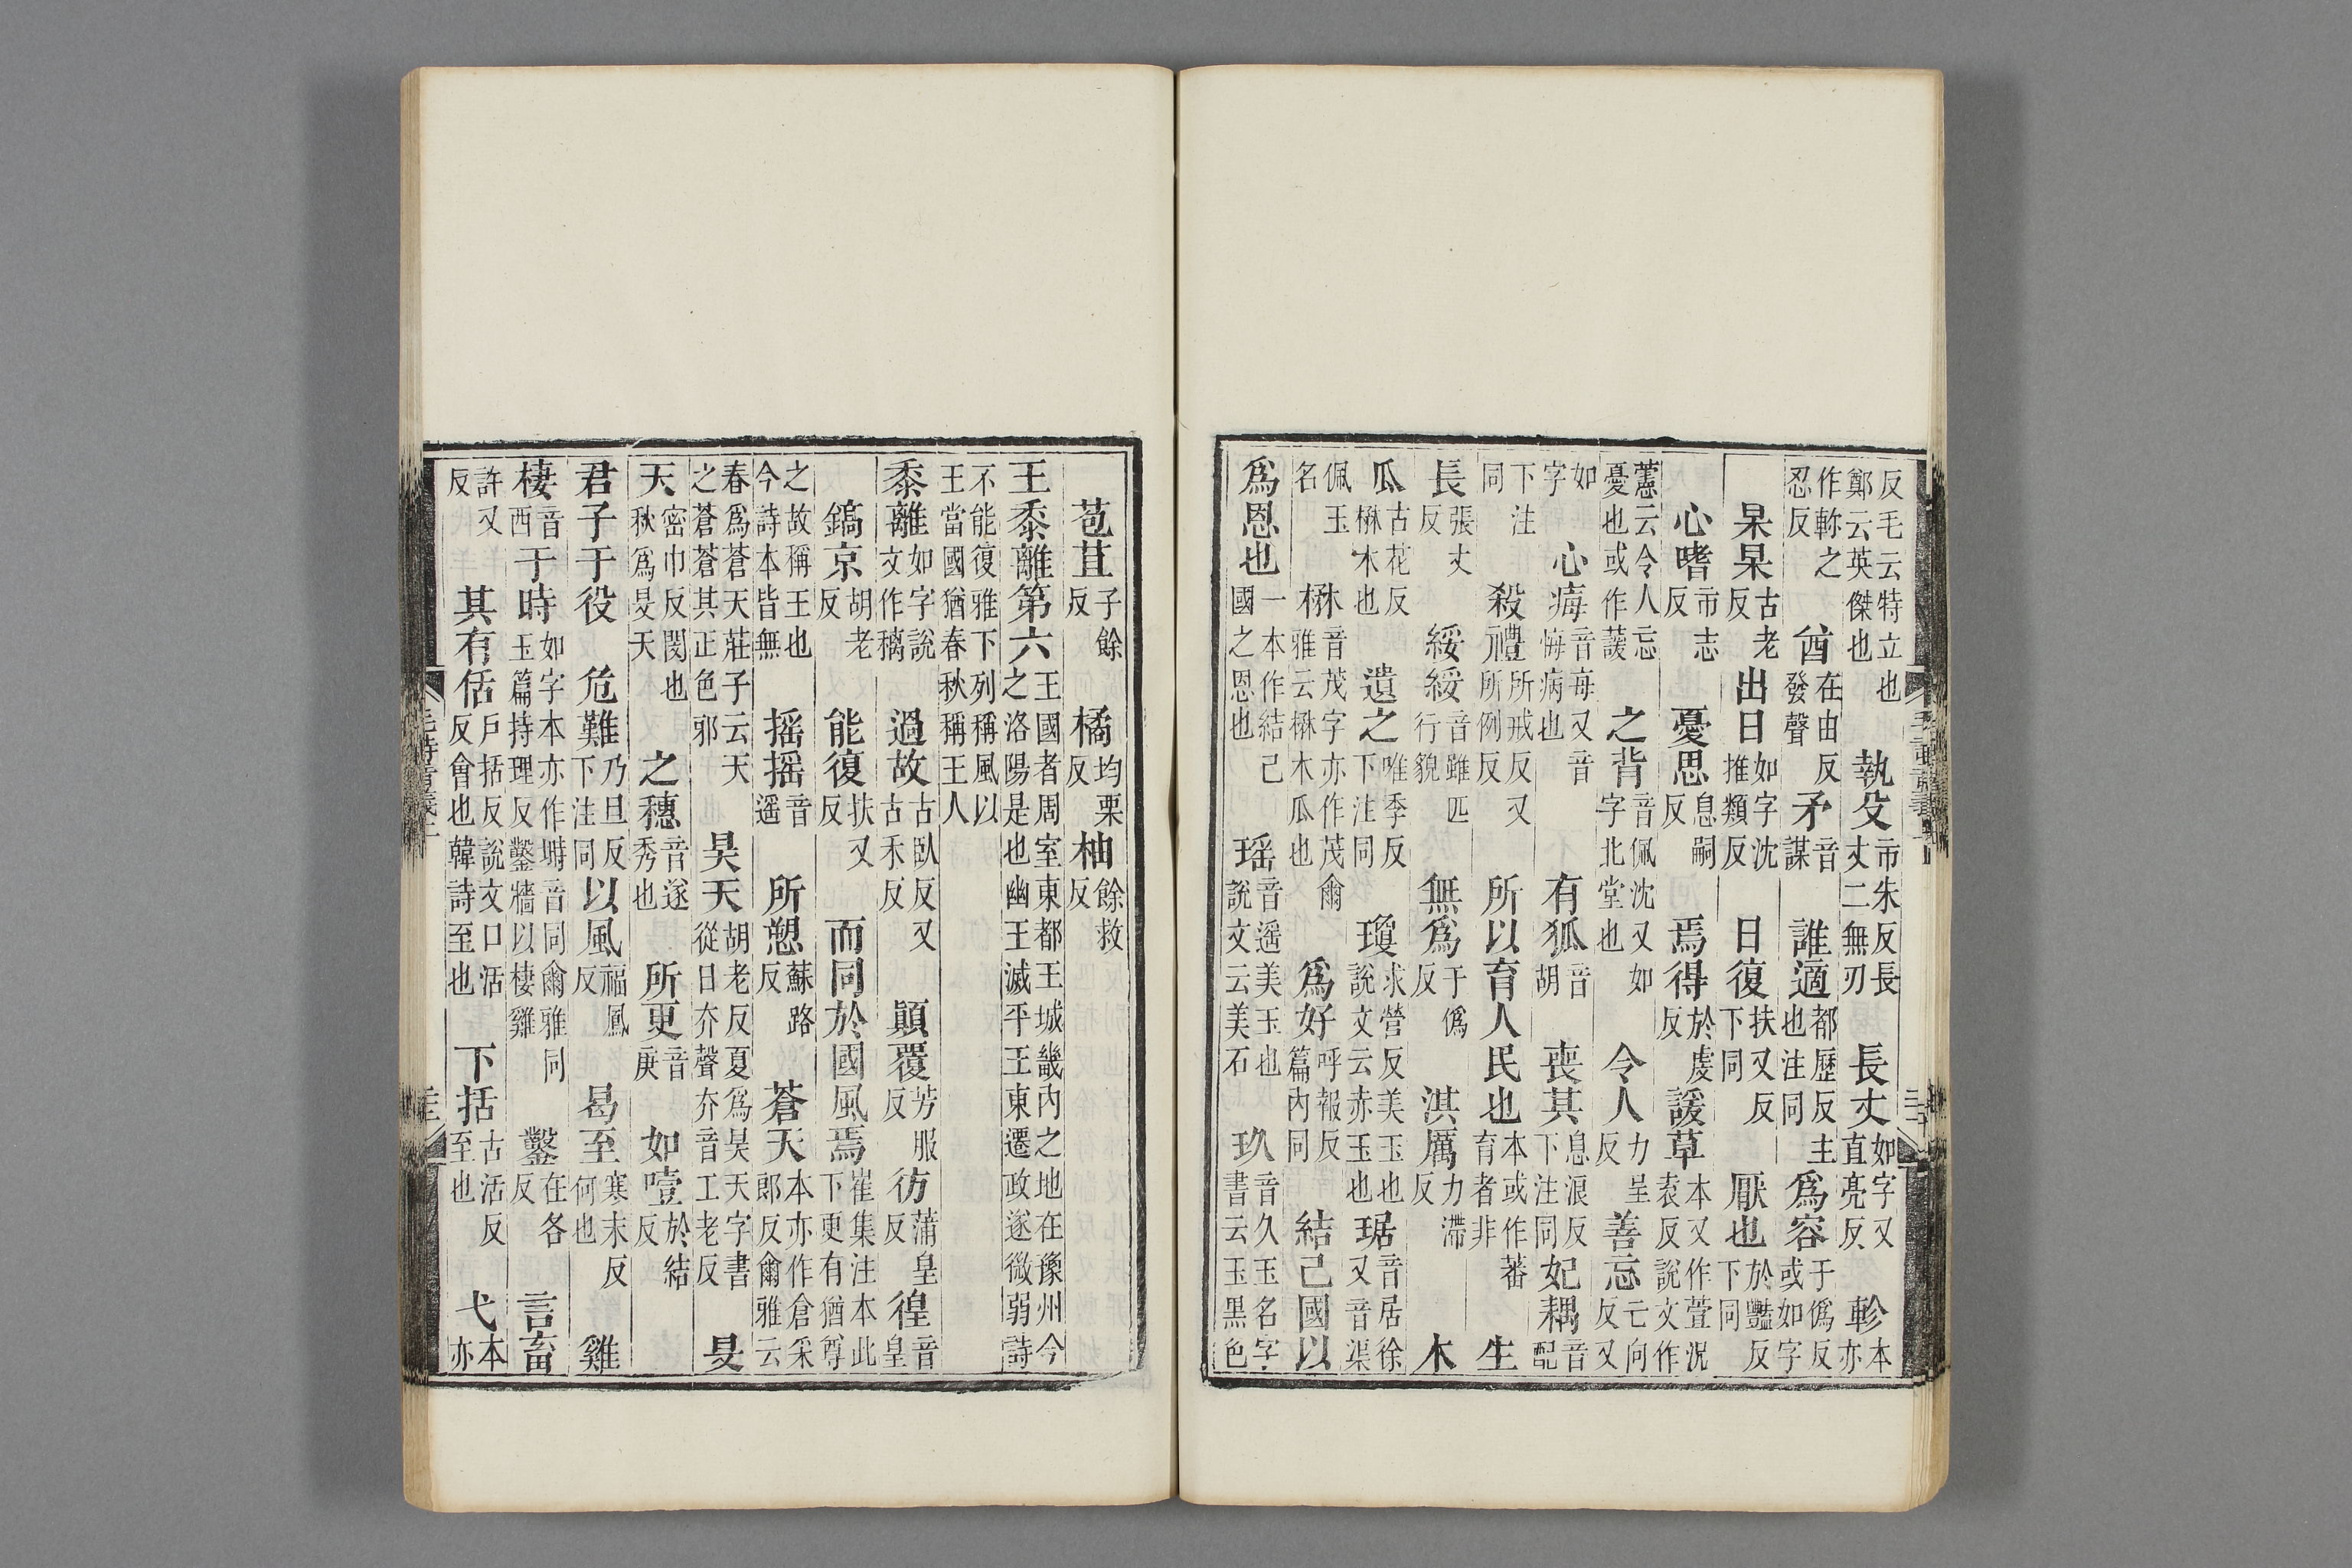 反毛云特立也鄭云英傑也執殳市朱反長丈二無刃長丈如字又直亮反軫本亦
作軫之忍反酋在由反發聲矛音謀誰適都歷反主也注同爲容于僞反或如字
杲杲古老反出日如字沈推類反日復扶又反下同厭也於豔反下同
心嗜市志反憂思息嗣反焉得於虔反諼草本又作萱況袁反說文作
藼云令人忘憂也或作蘐之背音佩沈又如字北堂也令人力呈反善忘亡向反又
如字心痗音每又音悔病也有狐音胡喪其息浪反下注同妃耦音配
下注同殺禮所戒反又所例反所以育人民也本或作蕃育者非生
長張丈反綏綏音雖匹行貌無爲于僞反淇厲力滯反木
瓜古花反楙木也遺之唯季反下注同瓊求營反美玉也說文云赤玉也琚音居徐又音渠
佩玉名楙木音茂字亦作茂爾雅云楙木瓜也爲好呼報反篇內同結己國以
爲恩也一本作結己國之恩也瑤音遥美玉也說文云美石玖音久玉名字書云玉黑色
苞苴子餘反橘均栗反柚餘救反
王黍離第六王國者周室東都王城畿內之地在豫州今之洛陽是也幽王滅平王東遷政遂微弱詩
不能復雅下列稱風以王當國猶春秋稱王人
黍離如字說文作穲過故古臥反又古禾反顛覆芳服反彷蒲皇反徨音皇
鎬京胡老反能復扶又反而同於國風焉崔集注本此下更有猶尊
之故稱王也今詩本皆無摇摇音遥所愬蘇路反蒼天本亦作倉采郎反爾雅云
春爲蒼天莊子云天之蒼蒼其正色邪昊天胡老反夏爲昊天字書從日夰聲夰音工老反旻
天密巾反閔也秋爲旻天之穗音遂秀也所更音庚如噎於結反
君子于役危難乃旦反下注同以風福鳳反曷至寒末反何也雞
棲音西于時如字本亦作塒音同爾雅同玉篇持理反鑿牆以棲雞鑿在各反言畜
許又反其有佸戶括反說文口活反會也韓詩至也下括古活反至也弋本亦